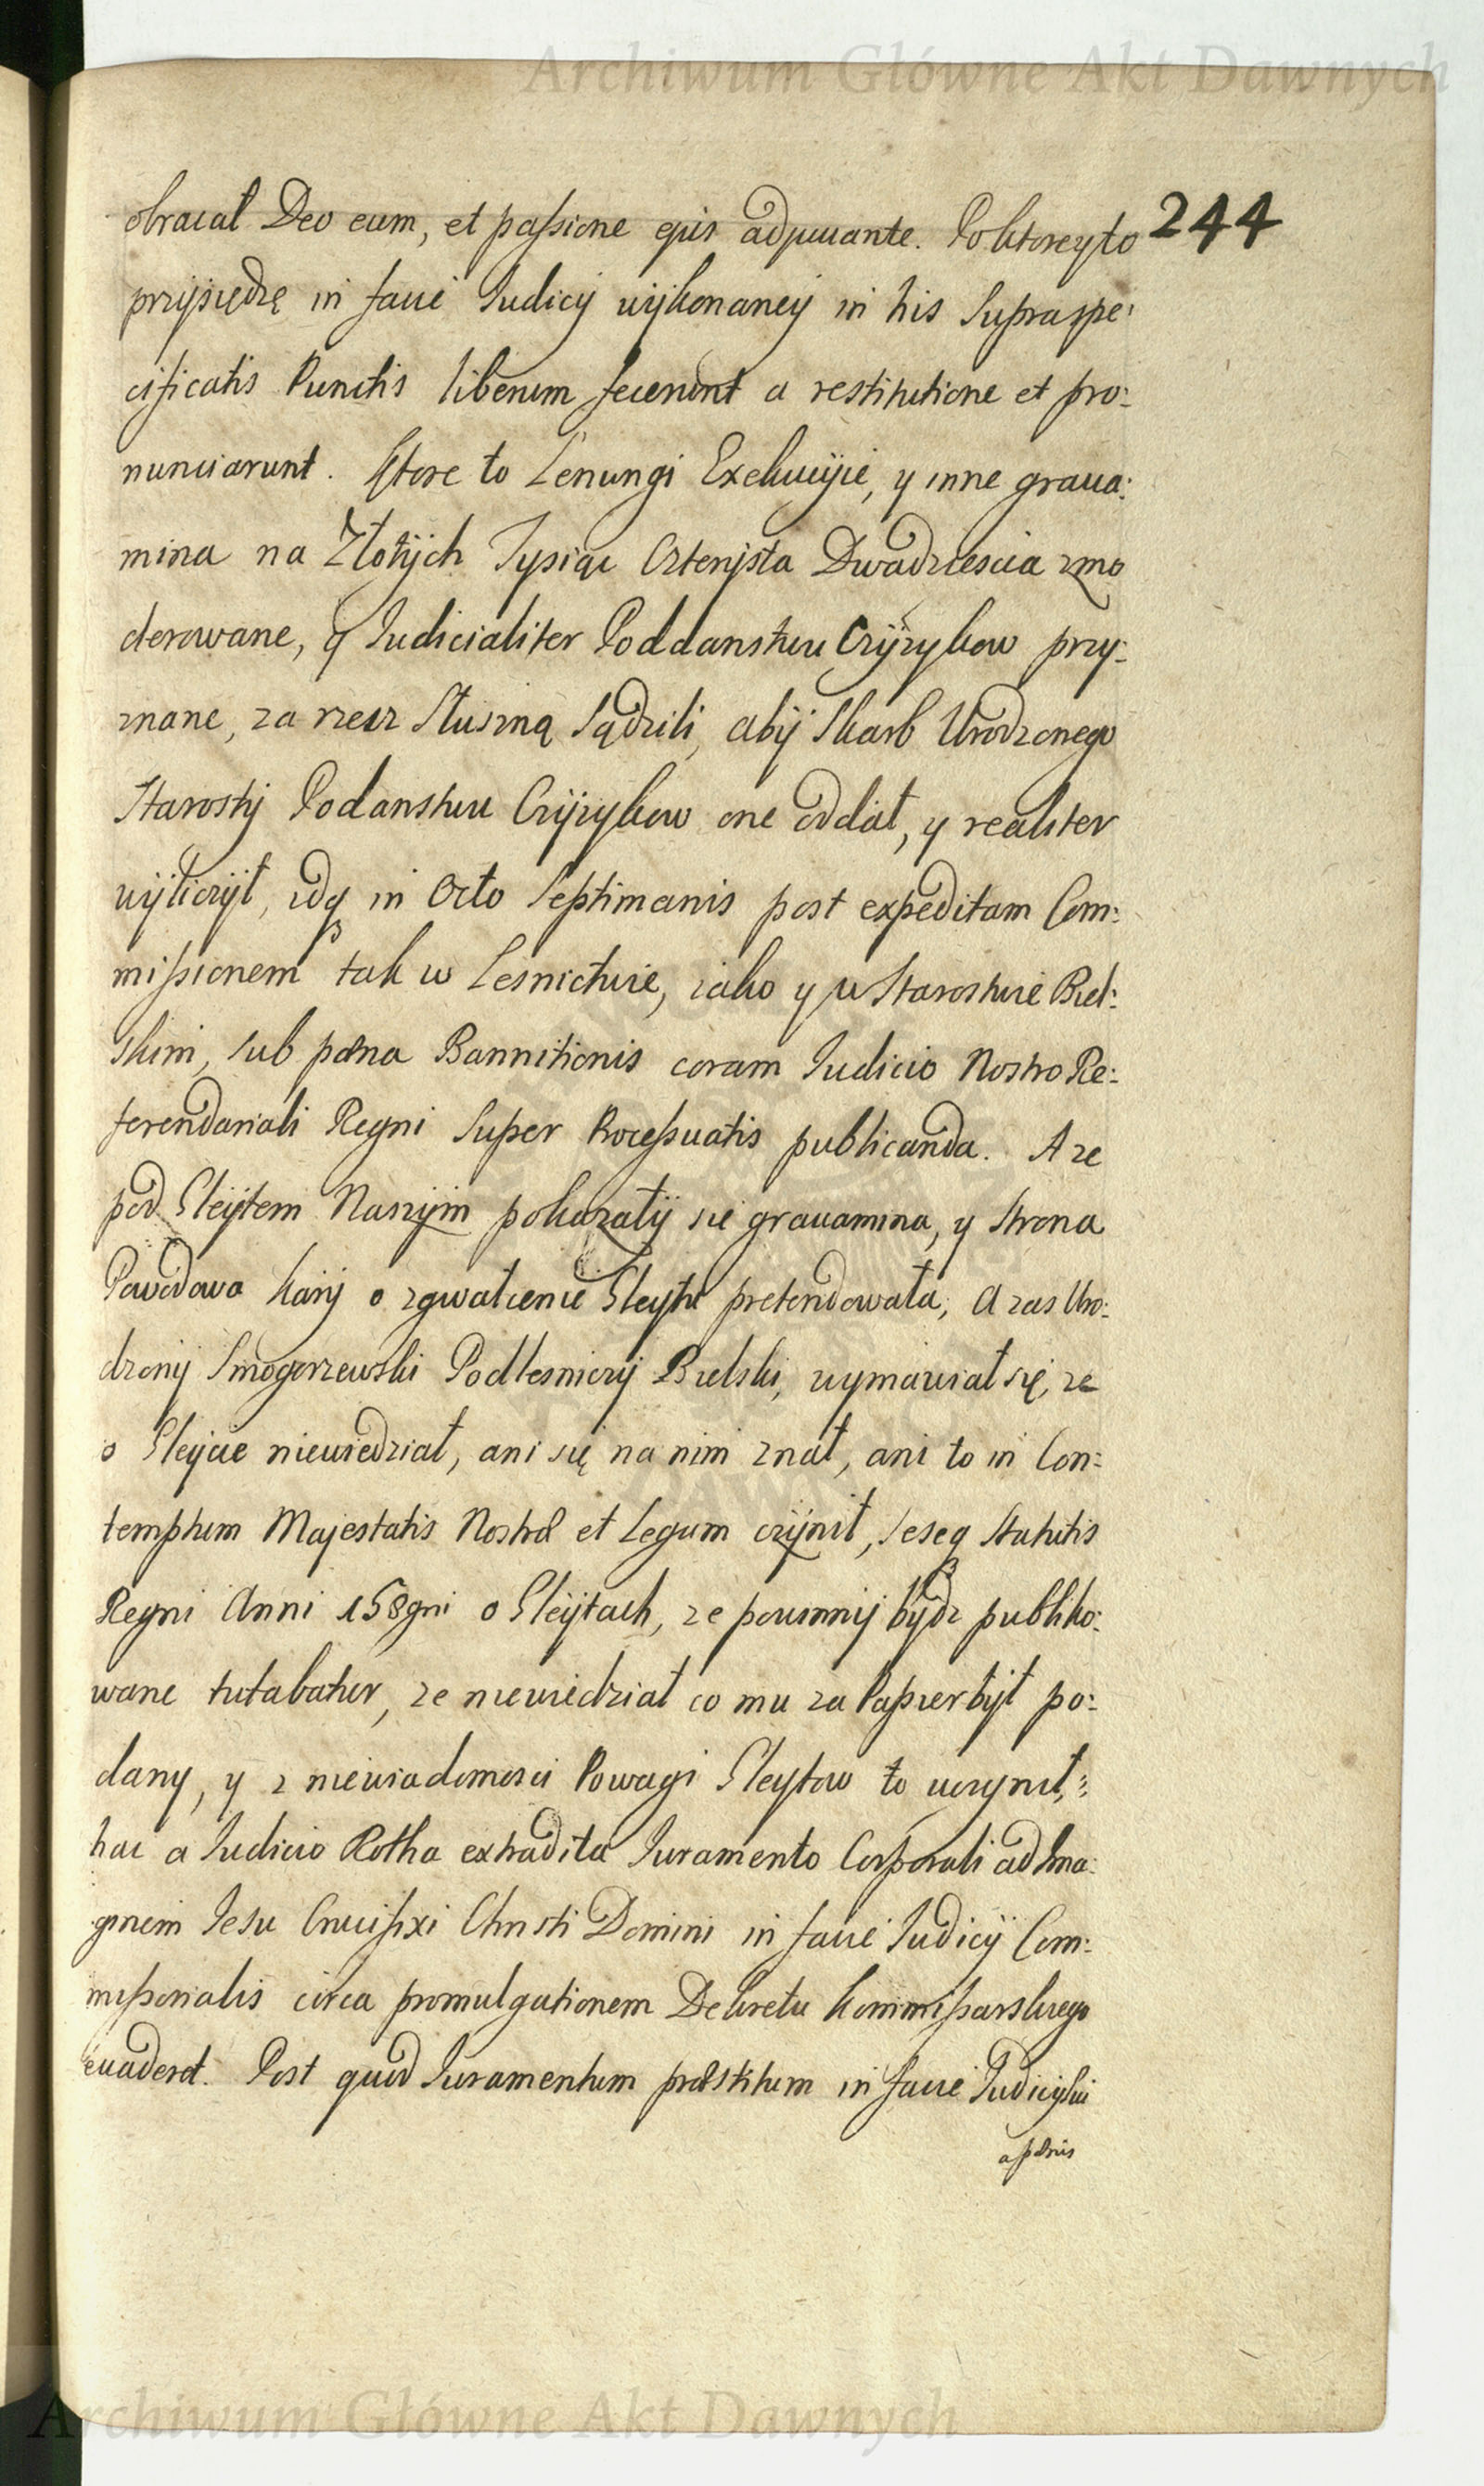 Archiwum Główne Akt Dawnych
244
obracał Deo eum, et passione ejus adjuuante. Po ktoreyto
przysiędzę in facie Iudicij wijkonaneij in his supraspe:
cificatis Punctis liberum fecerunt a restitutione et pro:
nunciarunt. Ktore to Lenungi Exekucijie, y inne graua:
mina na Złotijch Tysiąc Czterijsta Dwadziescia zmo
derowane, y Iudicialiter Poddanstwu Czijzykow przy:
znane, za rzecz słuszną sądzili, abij skarb Urodzonego
Starostij Podanstwu Czijzykow one oddał, y realiter
wijliczijł, idq3 in Octo septimanis post expeditam Com:
missionem tak w Lesnictwie, iako y w Starostwie Biel:
skim, sub pæna Bannitionis coram Iudicio Nostro Re:
ferendariali Regni super Processuatis publicanda. A ze
pod Gleijtem Naszijm pokazałij sie grauamina, y strona
Powodowa karij o zgwałcenie Gleytu pretendowała, A zas Uro:
dzonij Smogorzewski Podlesniczij Bielski, wymawiał się, ze
o Gleycie niewiedział, ani się na nim znał, ani to in Con:
temptum Majestatis Nostræ et Legum czijnił, seseq3 Statutis
Regni Anni 158gni o Gleijtach, ze powinnij bydz publiko:
wane tutabatur, ze niewiedział co mu za Papier bijł po:
dany, y z niewiadomosci Powagi Gleytow to uczynił,:
hac a Iudicio Rotha extradita Iuramento Corporali ad Ima:
ginem Iesu Crucifixi Christi Domini in facie Iudicij Com:
missorialis circa promulgationem Dekretu kommissarskiego
euaderet. Post quod Iuramentum præstitum in facie Iudicij sui
a pænis
Archiwum Główne Akt Dawnych